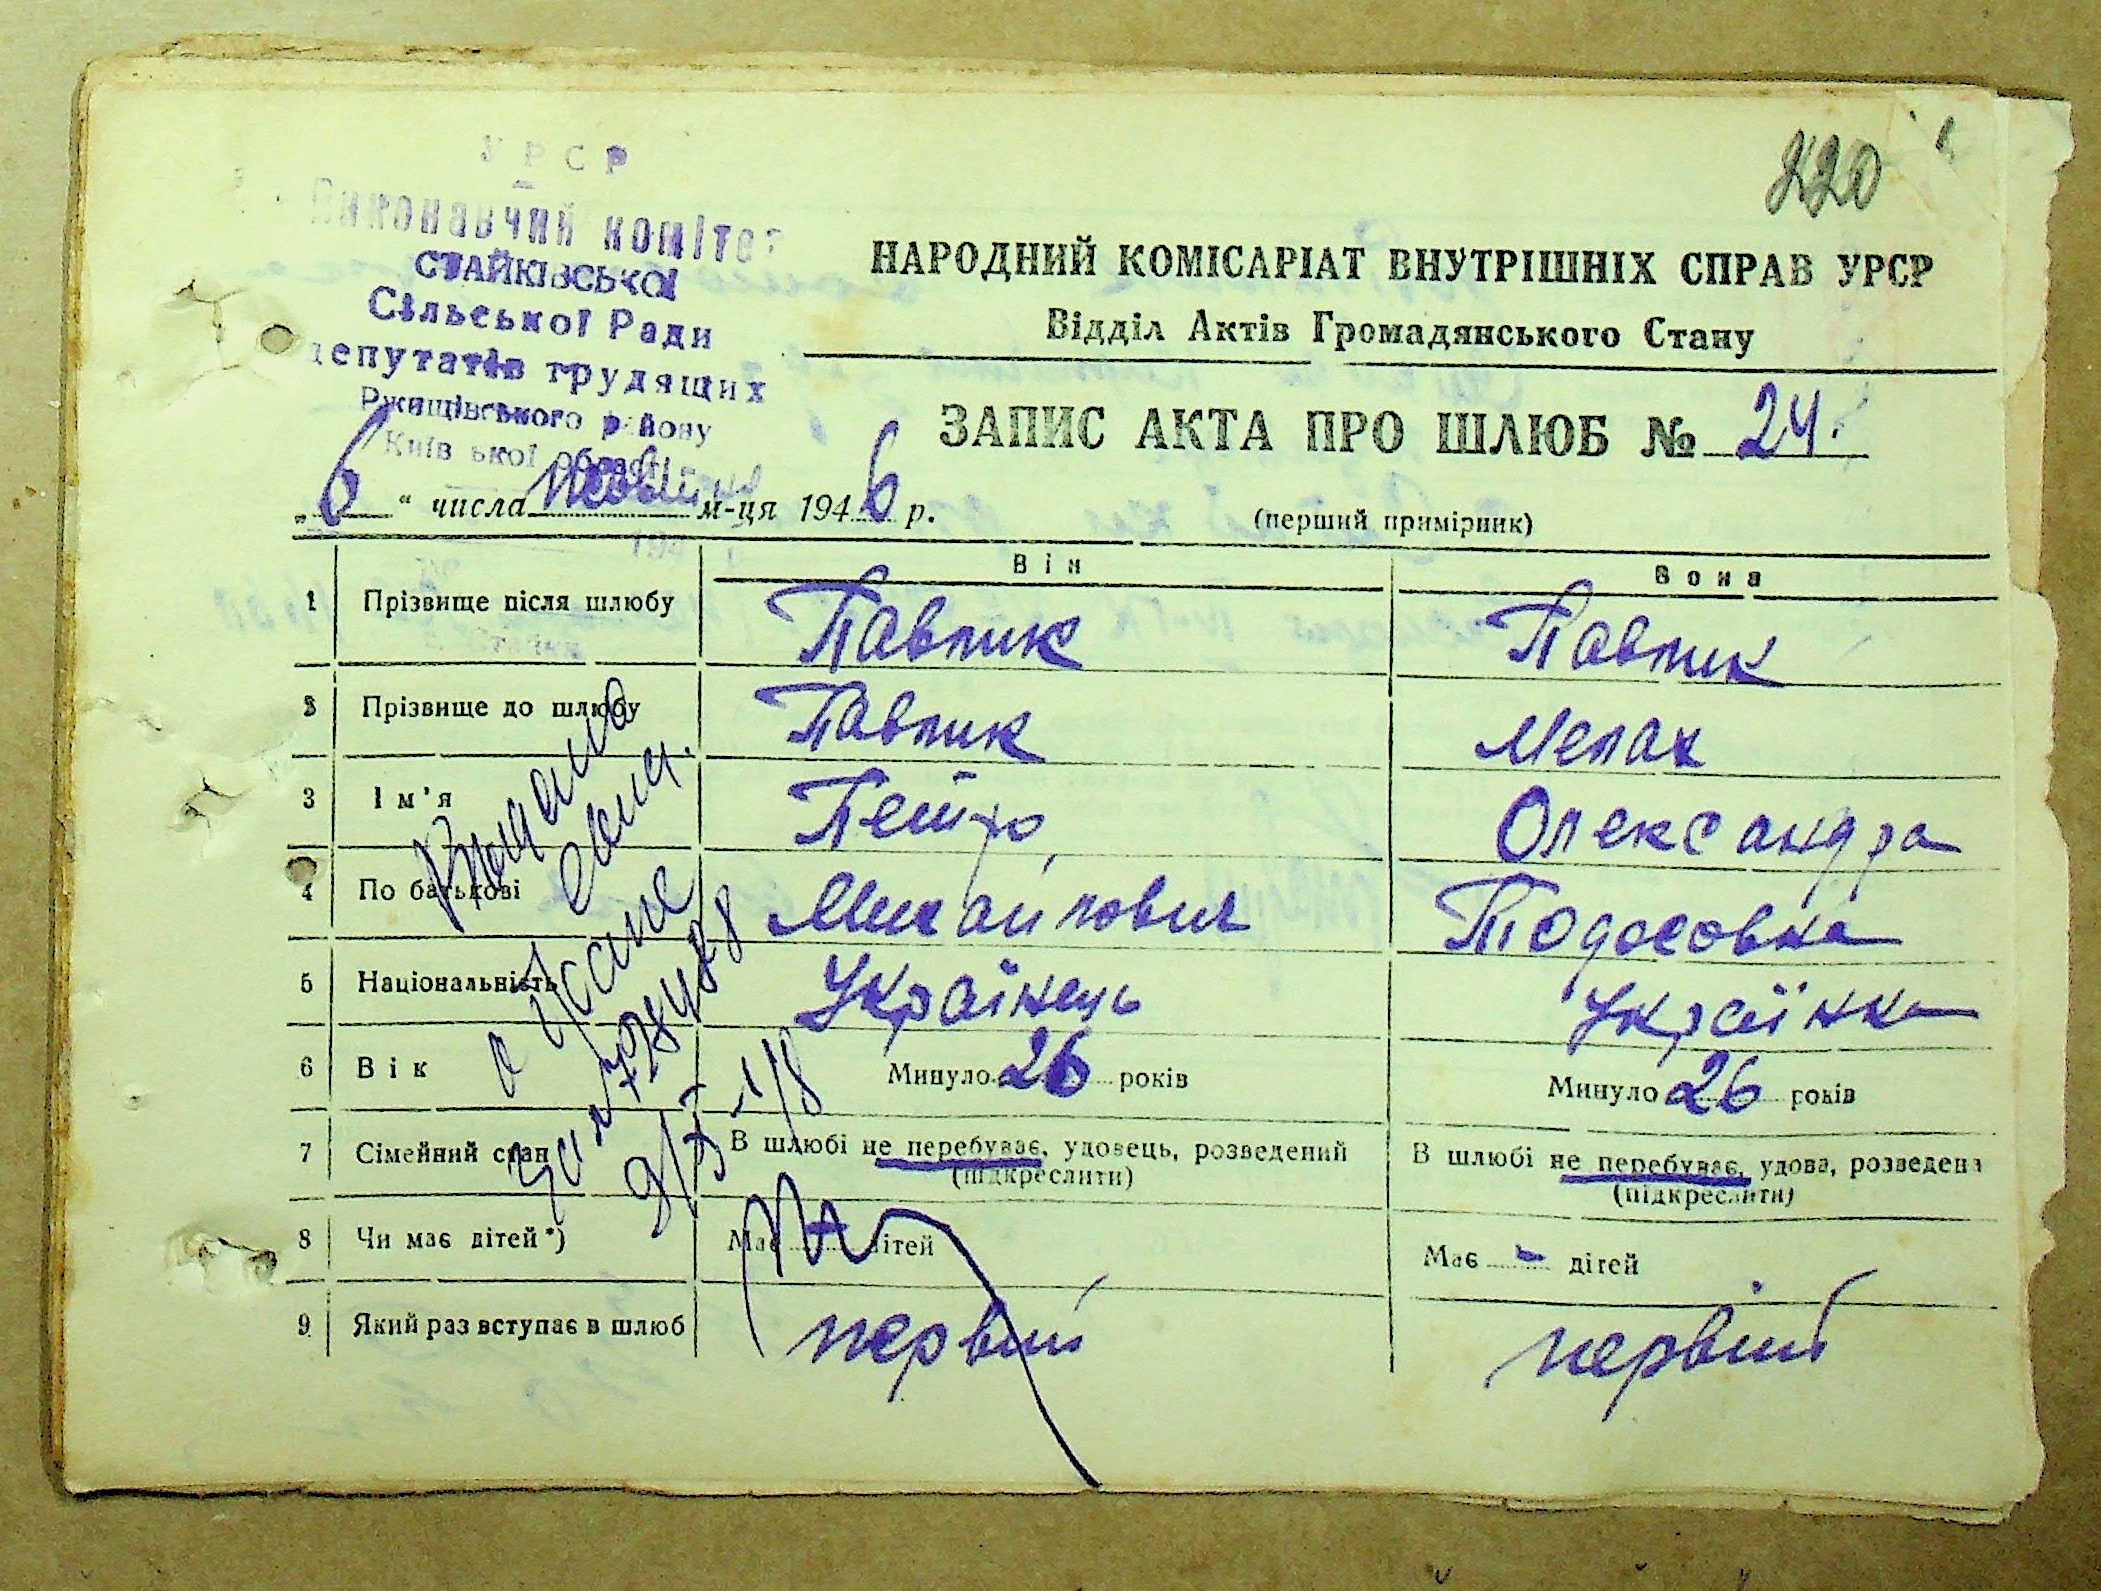 220
УРСР
Виконавчий комітет
СТАЙКІВСЬКОЇ
Сільської Ради
депутатів трудящих
Ржищівського району
Київської області
НАРОДНИЙ КОМІСАРІАТ ВНУТРІШНІХ СПРАВ УРСР
Відділ Актів Громадянського Стану
ЗАПИС АКТА ПРО ШЛЮБ № 24.
„6“ числа м-ця 1946 р.
(перший примірник)
Він Вона
1 Прізвище після шлюбу Павлик Павлик
2 Прізвище до шлюбу Павлик Мелах
3 Ім'я Петро Олександра
4 По батькові Михайлович Тодосовна
5 Національність Українець Українка
6 Вік Минуло 26 років Минуло 26 років
7 Сімейний стан В шлюбі не перебуває, удовець, розведений В шлюбі не перебуває, удова, розведена
(підкреслити) (підкреслити)
8 Чи має дітей*) Має дітей Має - дітей
9 Який раз вступає в шлюб первий первий